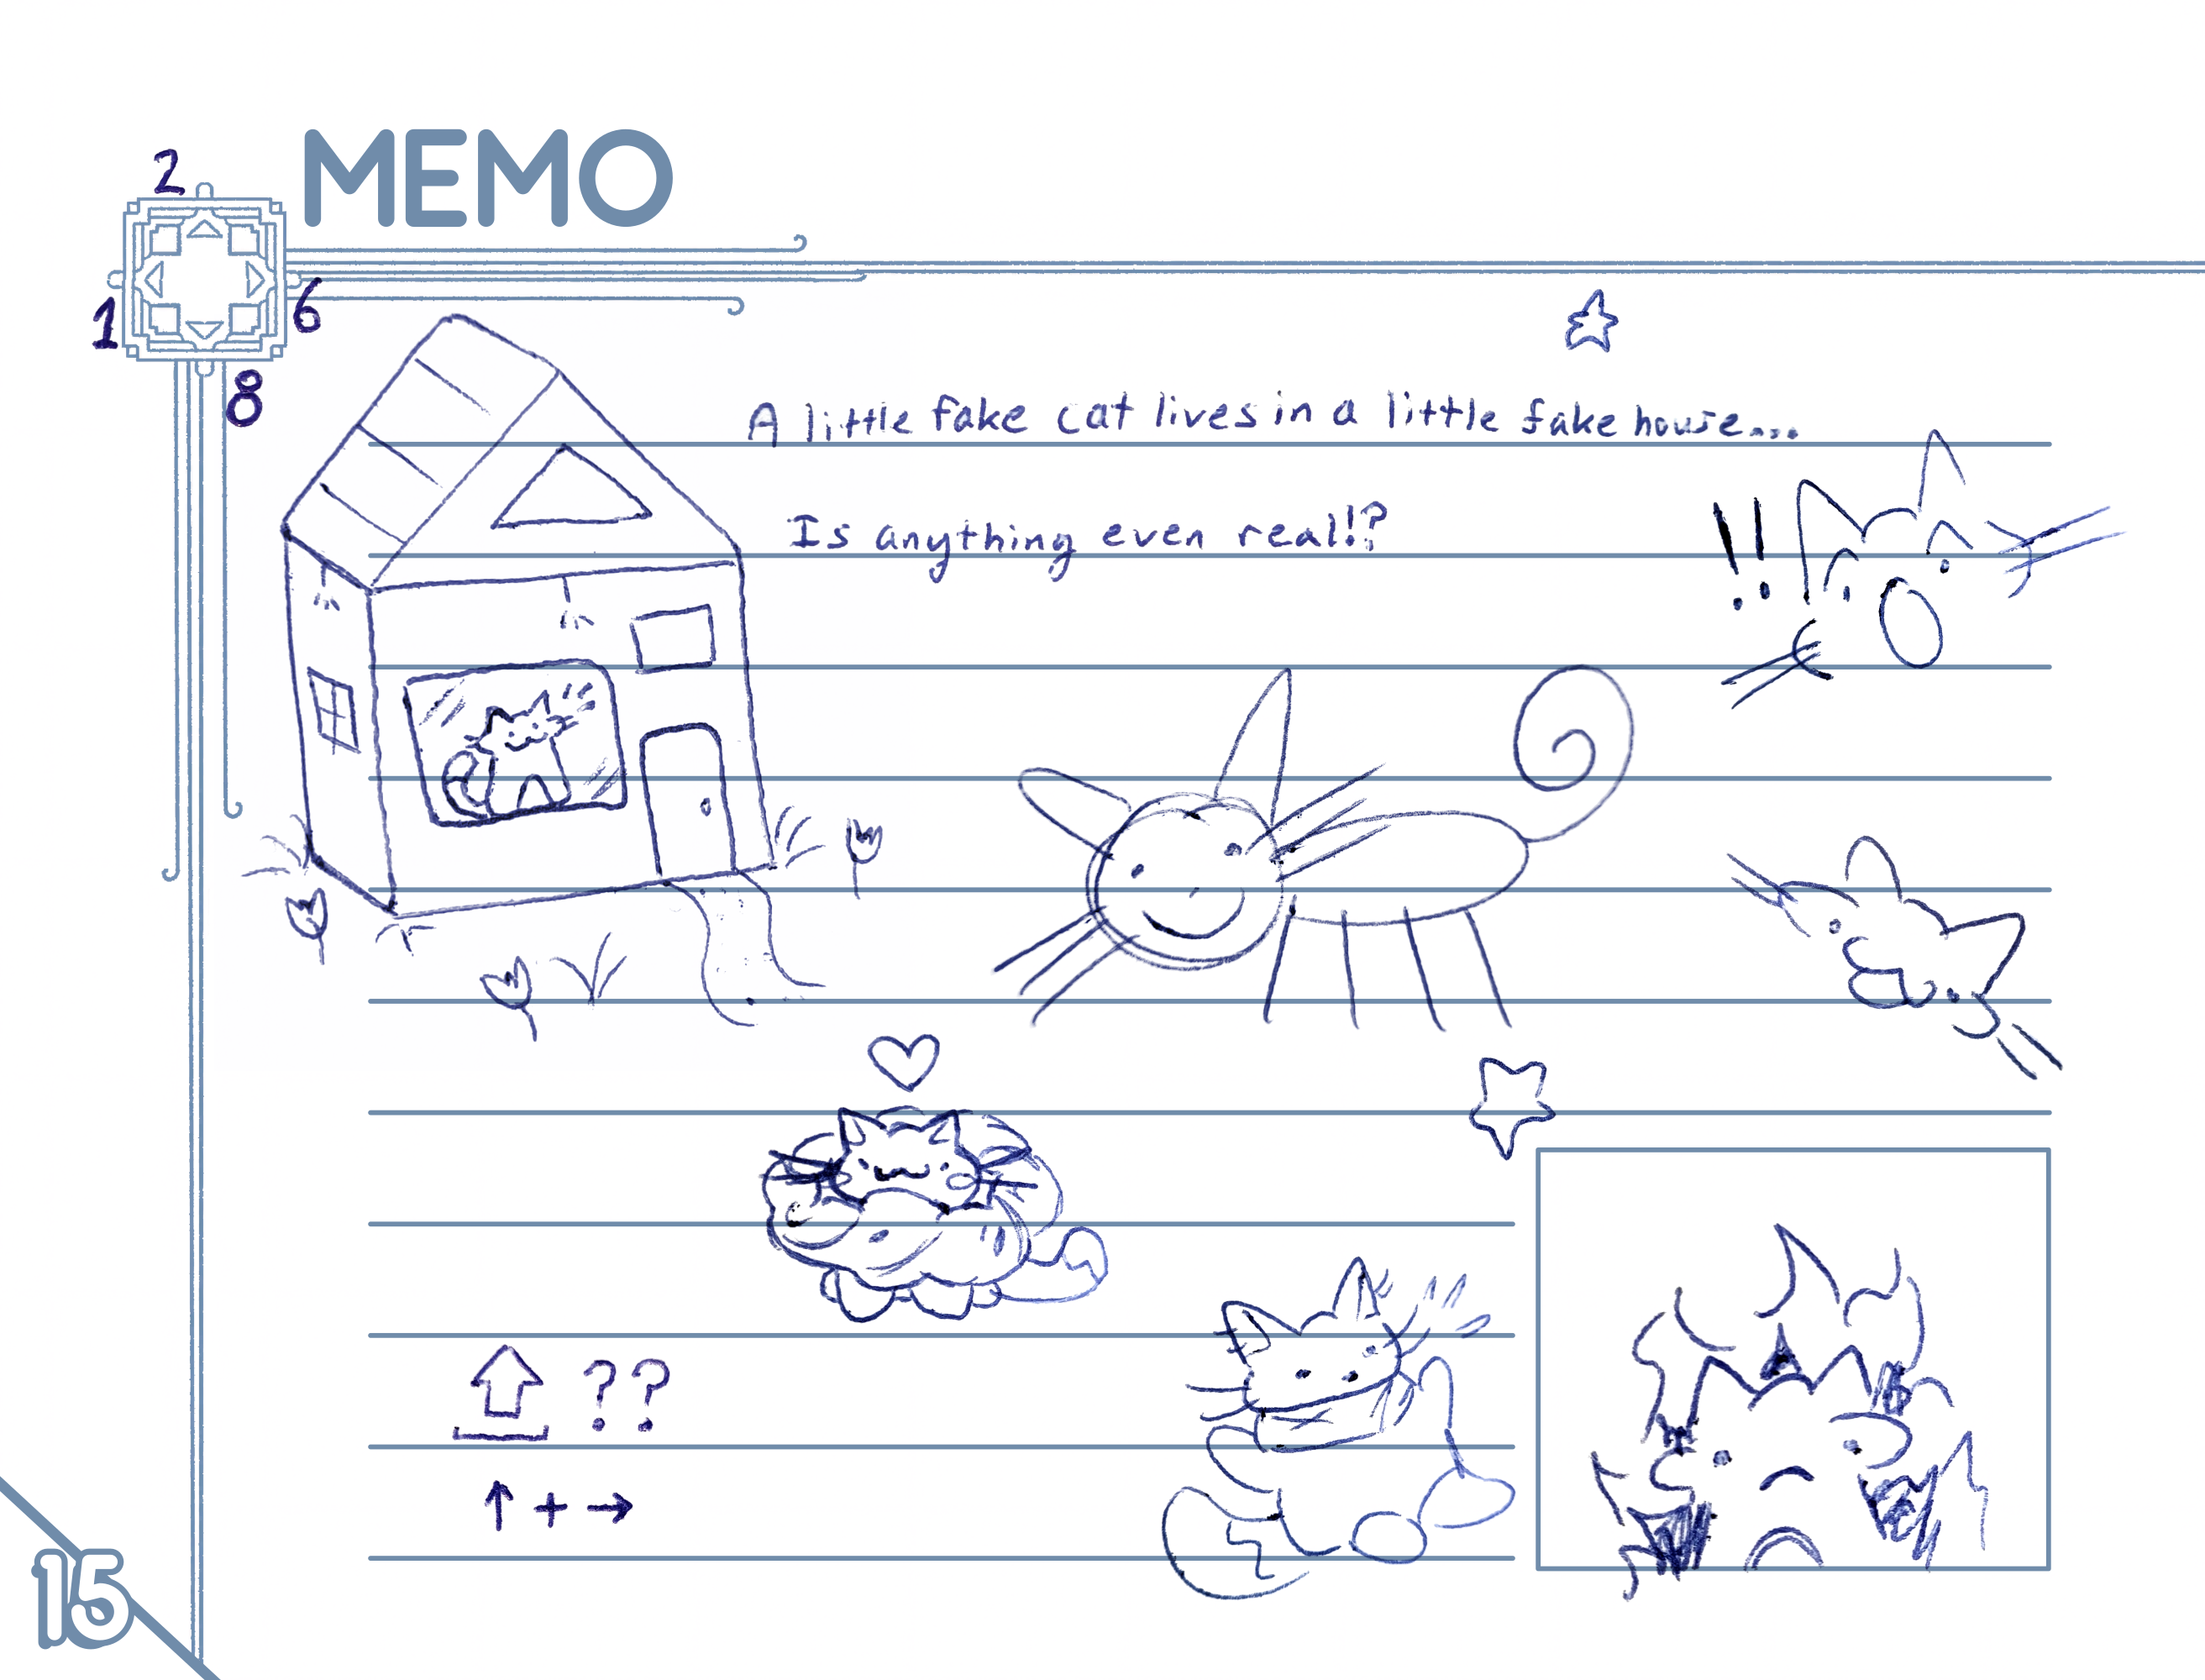 MEMO
2
1
6
8
A little fake cat lives in a little fake house...
Is anything even real!?
!!
??
↑ + →
15